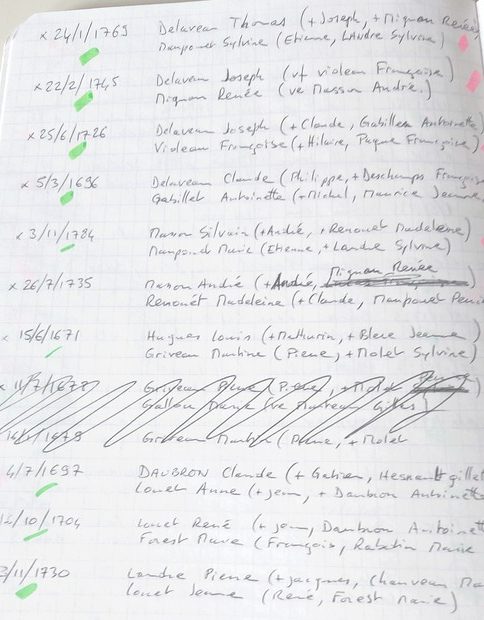 x 24/1/1769 Delaveau Thomas (+Joseph, +Mignon Renée)
Mampouet Sylvine (Etienne, Landre Sylvine)
x 22/2/1745 Delaveau Joseph (vf violeau Françoise)
Mignon Renée (ve Masson André)
x 25/6/1726 Delaveau Joseph (+Claude, Gabillet Antoinette)
Violeau Françoise (+Hilaire, Paque Françoise)
x 5/3/1696 Delaveau Claude (Philippe, +Deschamps Françoise
Gabillet Antoinette (+Michel, Maurice Jeanne
x 3/11/1784 Masson Silvain (+André, +Renouet Madeleine)
Mampouet Marie (Etienne, +Landre Sylvine)
Mignon Renée
x 26/7/1735 Masson André (+André,
Renouet Madeleine (+Claude, Mampouet Renée
x 15/6/1671 Hugues Louis (+Mathurin, +Blere Jeanne)
Griveau Martine (Pierre, +Molet Sylvine)
x 11/7/1678 Griveau Pierre (Pierre, +Molet
(ve Marteau Gilles)
1679 Griveau (Pierre, +Molet
4/7/1697 DAUBRON Claude (+Gatien, Hesnault gillet
Louet Anne (+jean, +Daubron Antoinette
/10/1704 Louet René (+jean, Daubron Antoinette
Forest Marie (François, Rabetin Marie
/11/1730 Landre Pierre (+jacques, Chauveau Ma
Louet Jeanne (René, Forest Marie)